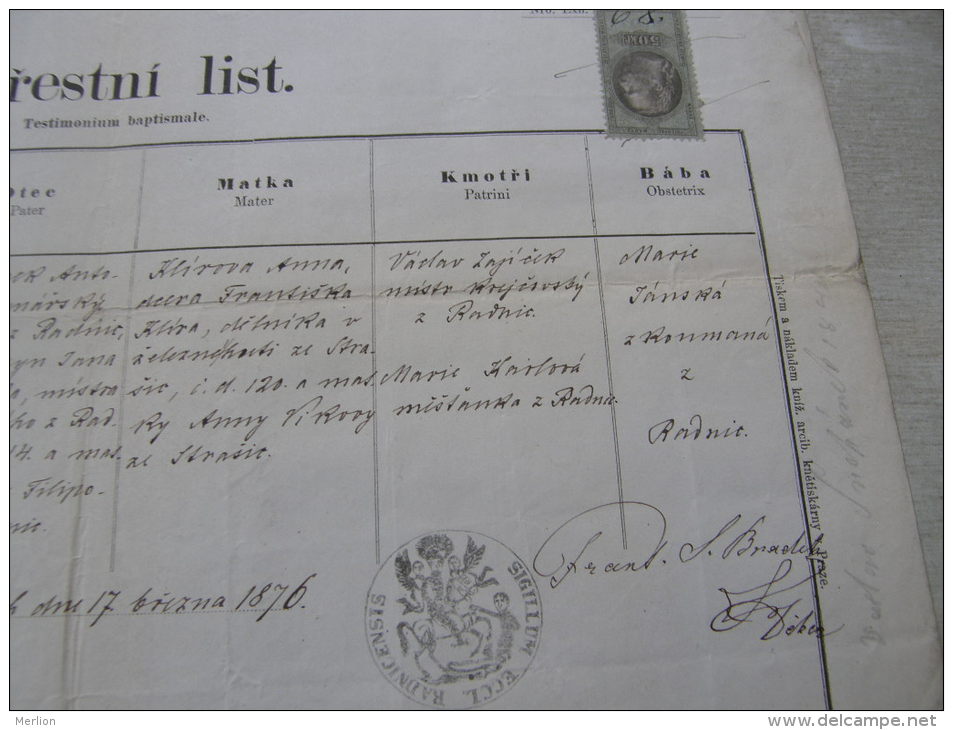 řestní list.
Testimonium baptismale.
Otec
Pater
Matka
Mater
Kmotři
Patrini
Bába
Obstetrix
ok Anto-
mářský
z Radnic,
yn Jana
mistra
ho z Rad
14. a mas.
Filipo-
nic.
Klírova Anna,
dcera Františka
Klíra, dělníka v
železné huti ze Stra-
šic, č. d. 120. a mat
ky Anny Vlkovy
ze Strašic.
Václav Zajíček
mistr krejčovský
z Radnic.
Marie Karlová
měšťanka z Radnic.
Marie
Jánská
z
Radnic.
dne 17 března 1876.
SIGILLUM ECCL. RADNICENSIS
Frant. S.
Tiskem a nákladem kníž. arcib. knětiskárny v Praze.
Merlion
www.delcampe.net